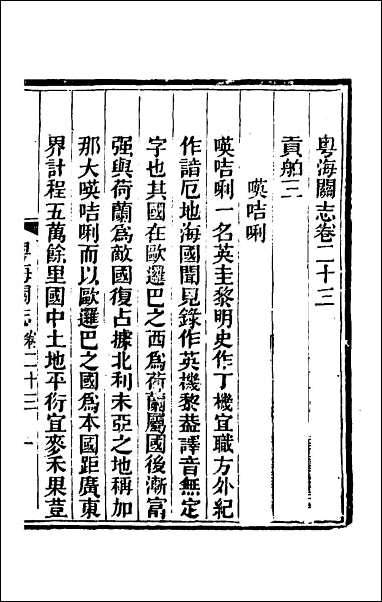 粤海關志卷二十三
貢舶三
㗲咭唎
㗲咭唎一名英圭黎明史作丁機宜職方外紀
作諳厄地海國聞見錄作英機黎葢譯音無定
字也其國在歐邏巴之西為荷蘭屬國後漸富
强與荷蘭為敵國復占據北利未亞之地稱加
那大㗲咭唎而以歐邏巴之國為本國距廣東
界計程五萬餘里國中土地平衍宜麥禾果荳
粤海關志卷二十三 一